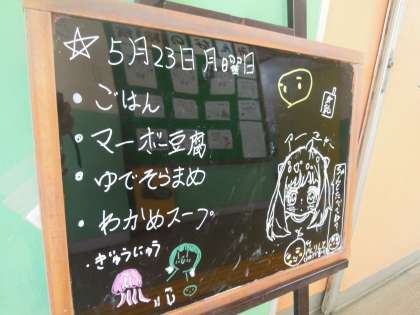 ☆ 5月23日 月曜日
・ごはん
・マーボー豆腐
・ゆでそらまめ
・わかめスープ
・ぎゅうにゅう